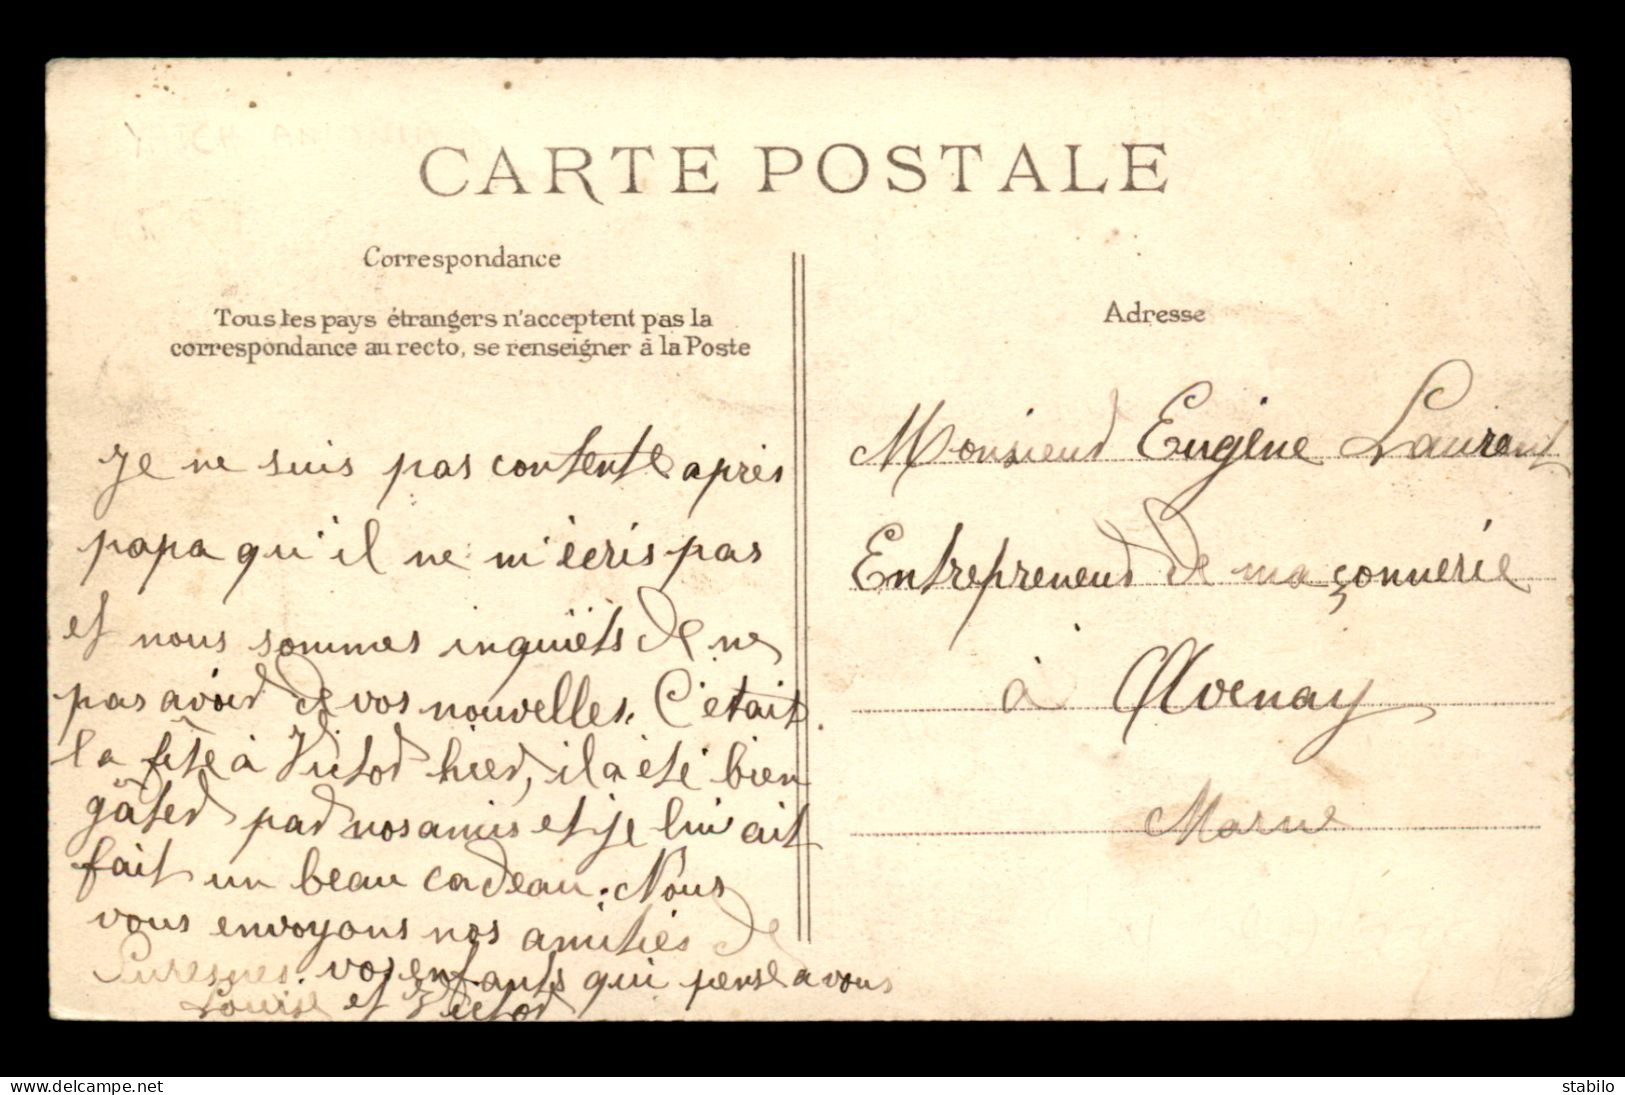 CARTE POSTALE
Correspondance
Tous les pays étrangers n'acceptent pas la
correspondance au recto, se renseigner à la Poste
Je ne suis pas contente après
papa qu'il ne m'écris pas
et nous sommes inquiëts de ne
pas avoir de vos nouvelles. C'était
la fête à Victor hier, il a été bien
gâter par nos amis et je lui ait
fait un beau cadeau. Nous
vous envoyons nos amitiés de
Suresnes. vos enfants qui pense a vous
Louise et Victor
Adresse
Monsieur Eugène Laurent
Entrepreneur de maçonnerie
à Avenay
Marne
stabilo
www.delcampe.net